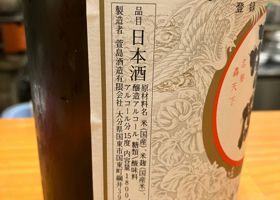 登録
品目 日本酒
原材料名 米(国産)、米麹(国産米)、
醸造アルコール、糖類/酸味料
アルコール分 15度 内容量 1800
製造者 萱島酒造有限会社 大分県国東市国東町綱井39